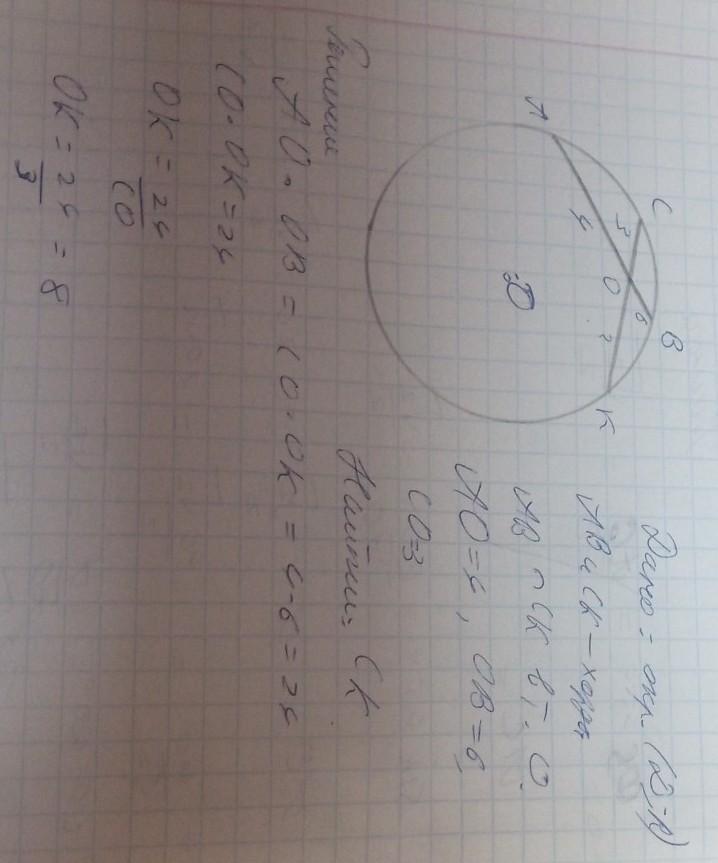 A
C
B
K
3
4
O
6
?
D
Дано: окр. (D;R)
AB и CK – хорды
AB ∩ CK в т. O.
AO=4, OB=6,
CO=3
Найти: CK
Решение
AO · OB = CO · OK = 4·6 = 24
CO · OK = 24
OK = 24/CO
OK = 24/3 = 8